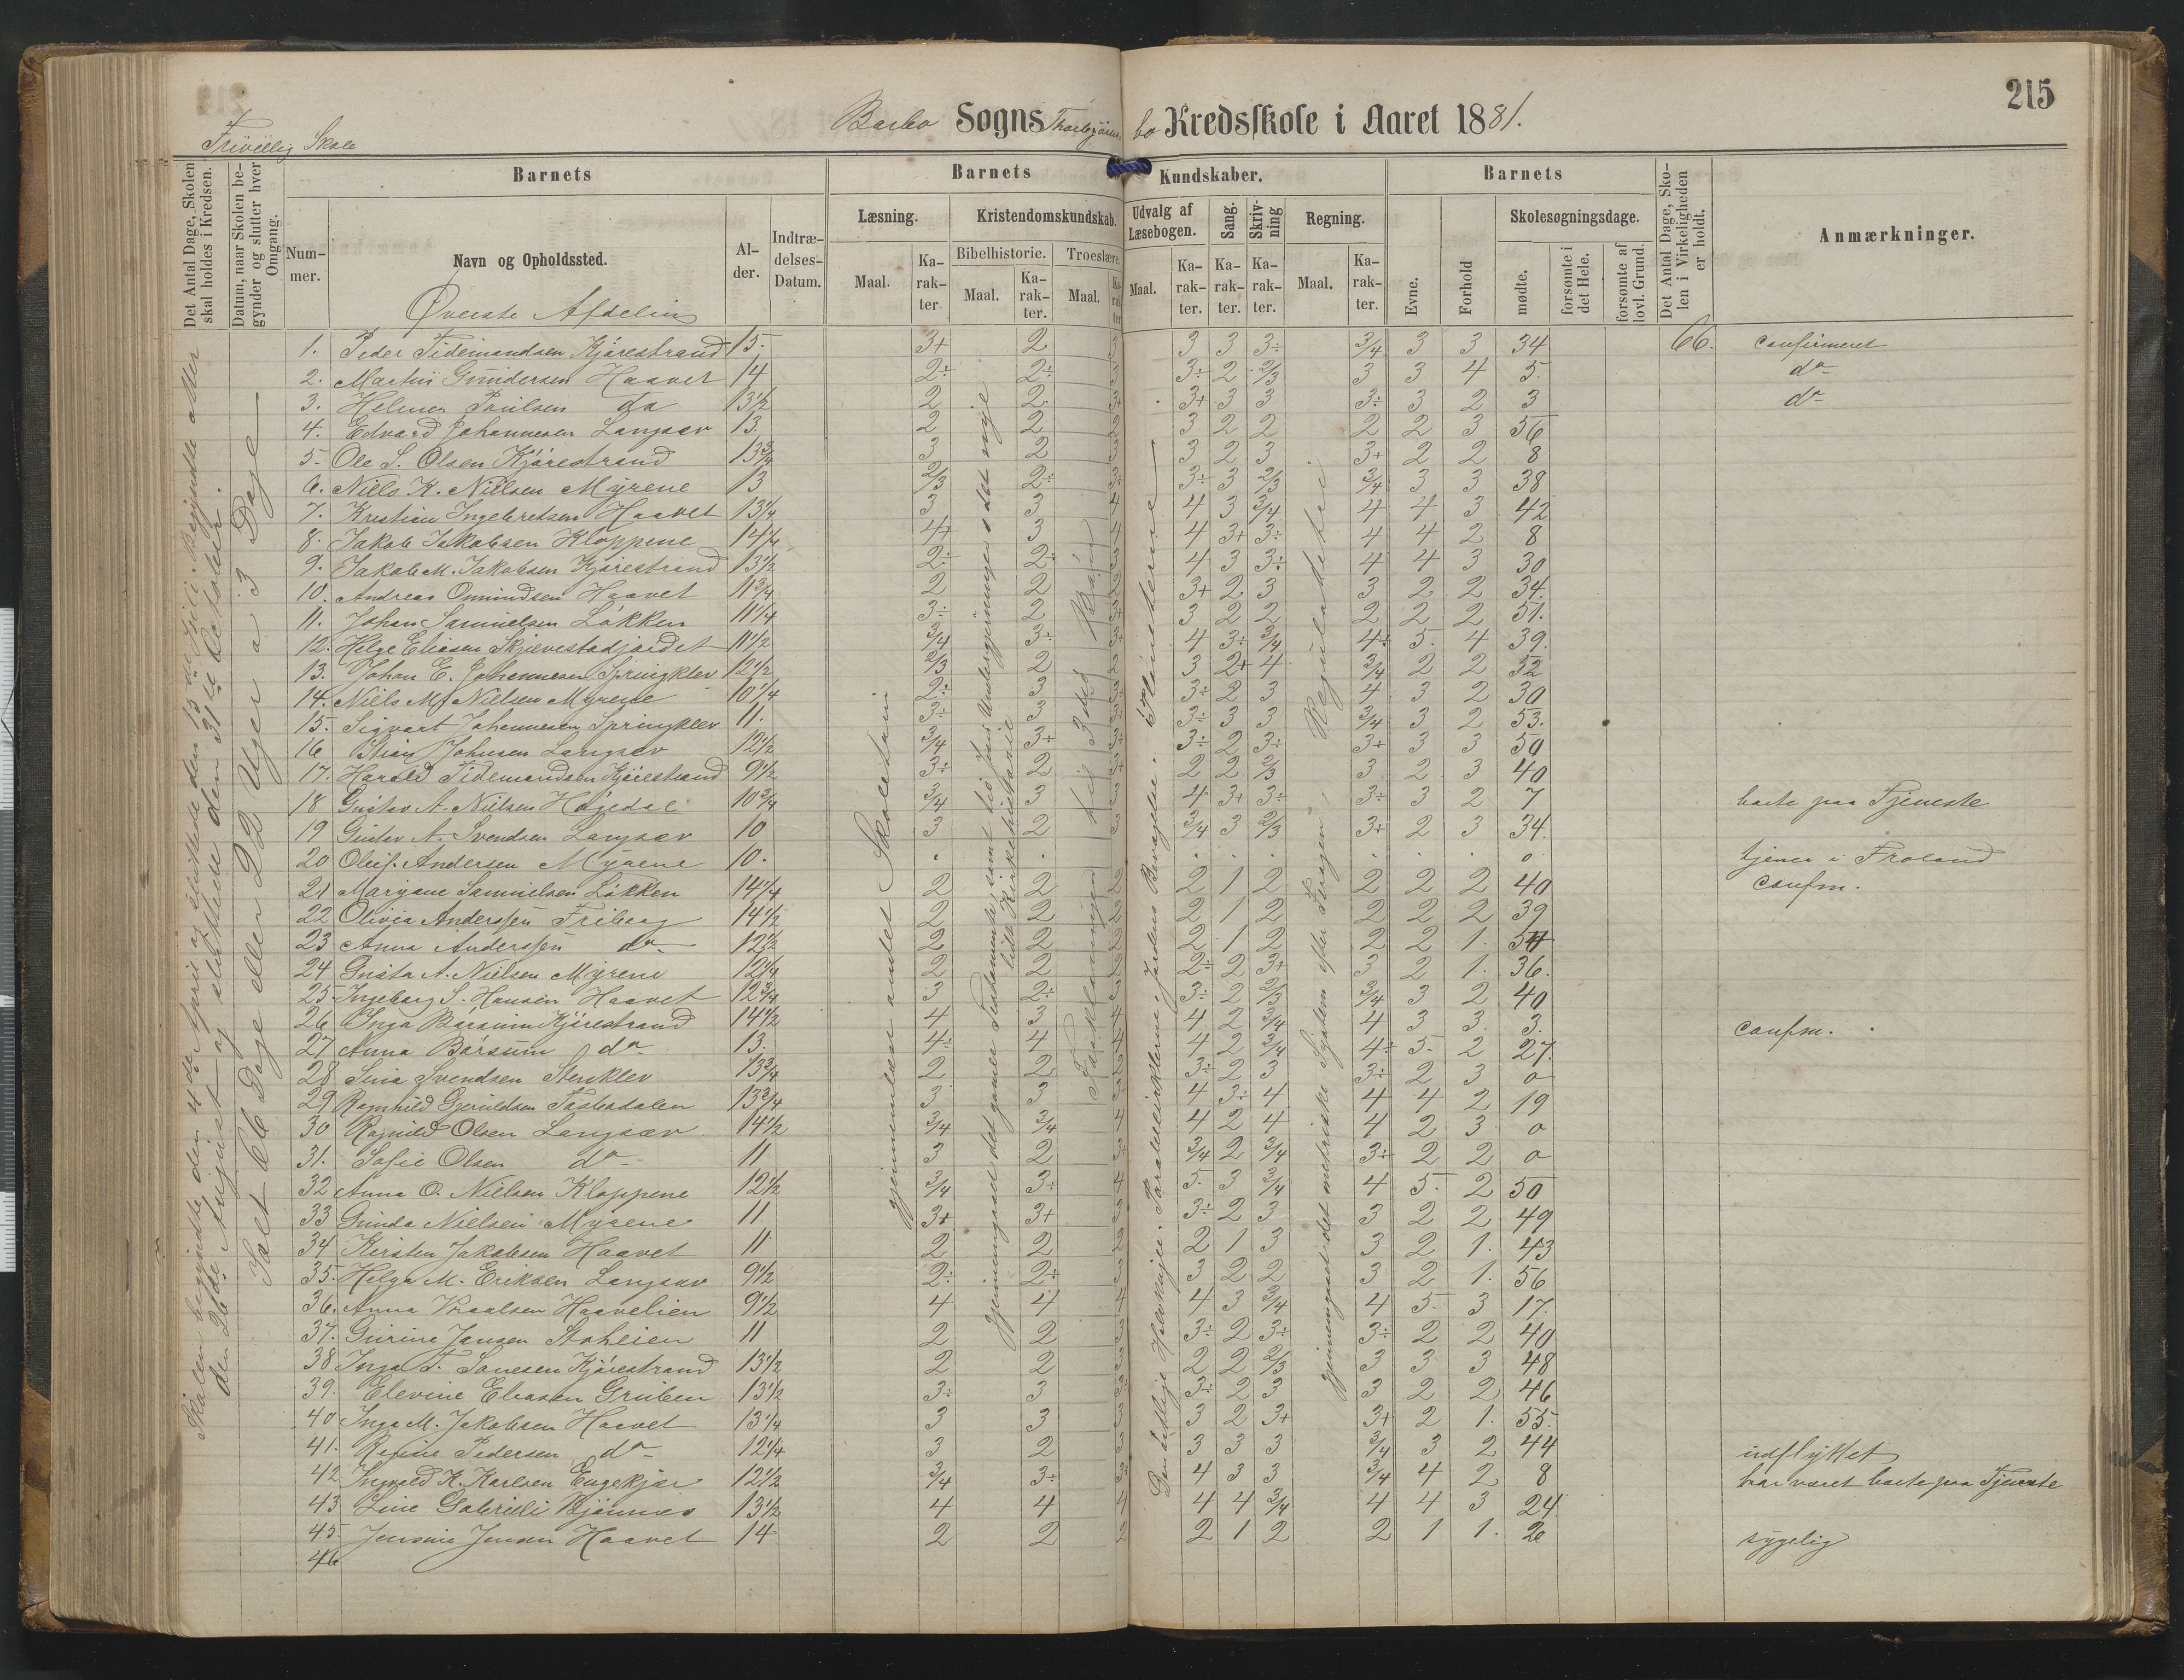 215
Barbo Sogns Thorbjørnsbo Kredsskole i Aaret 1881.
Frivillig Skole
Det Antal Dage, Skolen skal holdes i Kredsen.
Datum, naar Skolen begynder og slutter hver Omgang.
Barnets
Nummer.
Navn og Opholdssted.
Alder.
Indtrædelses-Datum.
Barnets Kundskaber.
Læsning.
Maal.
Karakter.
Kristendomskundskab.
Bibelhistorie.
Maal.
Karakter.
Troeslære.
Maal.
Karakter
Udvalg af Læsebogen.
Maal.
Karakter.
Sang.
Karakter.
Skrivning
Karakter.
Regning.
Maal.
Karakter.
Barnets
Evne.
Forhold
Skolesøgningsdage.
mødte.
forsømte i det Hele.
forsømte af lovl. Grund.
Det Antal Dage, Skolen i Virkeligheden er holdt.
Anmærkninger.
Øverste Afdeling
Skolen begyndte den 4de April og sluttede den 13de Juli. Begyndte atter
den 26de August og sluttede den 31te Octobler.
Holt 66 Dage eller 22 Uger a 3 Dage
gjennemlæst andet Skoletrin
gjennemgaaet det gamle Testamente samt tio Jesu Undergjerninger i det nye
lidt Kirkehistorie
Forklaringen til 3die
Den østlige Halvkugle. Parallelcirklerne. Jordens Bevægelse. Planeterne
gjennemgaaet det metriske System efter Reguladetri.
1. Peder Tidemandsen Kjørrestrand 15 3+ 2 3 3 3 3÷ 3/4 3 3 34 66. confirmeret
2. Martin Gundersen Haavet 14 2÷ 2÷ 3 3÷ 2 2/3 3 3 4 5. do
3. Helmer Poulsen do 13½ 2 2 3+ 3+ 3 3 3÷ 3 2 3 do
4. Edvard Johannesen Langsæv 13 2 2 2 3 2 2 2 2 3 56
5. Ole S. Olsen Kjørrestrand 13¾ 3 2 2 3 2 3 3+ 2 2 8
6. Niels K. Nielsen Myrene 13 2/3 2÷ 3÷ 3÷ 3 2/3 3/4 3 3 38
7. Kristian Ingebretsen Haavet 13¼ 3 3 4 4 3 3/4 4 4 3 42
8. Jakob Jakobsen Kloppene 14¼ 4+ 3 4 4 3+ 3÷ 4 4 2 8
9. Jakob M. Jakobsen Kjørrestrand 13½ 2÷ 2÷ 3 4 3 3÷ 4 4 3 30
10. Andreas Omundsen Haavet 11¾ 2 2 2 3+ 2 3 3 2 2 34.
11. Johan Samuelsen Løkken 11¼ 3÷ 2 3+ 3 2 2 2 2 2 51.
12. Helge Eliasen Skjævestadjordet 11½ 3/4 3÷ 3÷ 4 3÷ 3/4 4÷ 5. 4 39.
13. Johan E. Johannesen Springklev 12½ 2/3 2 3 3 2+ 4 3/4 2 2 52
14. Niels M. Nielsen Myrene 10¼ 2÷ 3 3÷ 3÷ 2 3 4 3 2 30
15. Sigvart Johannesen Springklev 11. 3÷ 3 3÷ 3÷ 3 3 3/4 3 2 53.
16 Stian Johnsen Langsæv 12½ 3/4 3÷ 3÷ 3÷ 2 3÷ 3+ 3 3 50
17. Harald Tidemandsen Kjørrestrand 9½ 3÷ 2 3+ 2 2 2/3 3 2 3 40
18 Gustav A. Nielsen Høgedal 10¾ 3/4 3 3 4 3+ 3÷ 3÷ 3 2 7 borte paa Tjeneste
19 Gustav A. Svendsen Langsæv 10 3 2 3 3/4 3 2/3 3+ 2 3 34.
20 Oluf Andersen Myrene 10. . . . . . . . . o tjener i Froland
21 Maryane Samuelsen Løkken 14¼ 2 2 2 2 1 2 2 2 2 40 confm.
22 Olivia Anderssen Friberg 14½ 2 2 2 2 1 2 2 2 2 39
23 Anna Anderssen do 12½ 2 2 2 2 1 2 2 2 1. 54
24 Gusta A. Nielsen Myrene 12¼ 2 2 2 2÷ 2 3+ 3 2 1. 36.
25. Ingeborg S. Hansen Haavet 12¾ 3 2÷ 3 3÷ 2 2/3 3/4 3 2 40
26 Inga Børsum Kjørrestrand 14½ 4 3 4 4 2 3/4 4 3 3. 3. confm.
27 Anna Børsum do 13. 4÷ 4 4 4 2 3/4 4÷ 5. 2 27.
28 Sina Svendsen Stenklev 13¾ 2 2 2 3÷ 2 3 3÷ 2 3 o
29 Ragnhild Gjeruldsen Tostedalen 13¾ 3 3 3 4 3÷ 4 4 4 2 19
30 Ragnild Olsen Langsæv 14½ 3/4 3/4 4 4 2 4 4 2 3 o
31. Sofie Olsen do 11 3 2 3÷ 3/4 2 3/4 3÷ 2 2 o
32 Anna O. Nielsen Kloppene 12½ 3/4 3÷ 4 5. 3 3/4 4 5. 2 50
33 Gunda Nielsen Myrene 11 3+ 3+ 3 3÷ 2 3 3 2 2 49
34 Kirsten Jakobsen Haavet 11 2 2 2 2 1 3 3 2 1. 43
35. Helga M. Eriksen Langsæv 9½ 2÷ 2÷ 3 3 2 2 3 2 1. 56
36. Anna Vraalsen Haavelien 9½ 4 4 4 4 3 3/4 4 5. 3 17.
37. Gurine Jansen Stahlien 11 2 2 3 3÷ 2 3÷ 3÷ 2 2 40
38 Inga T. Sanesen Kjørrestrand 13½ 2 2 3 2 2 2/3 3 3 3 48
39. Elevine Eliasen Gruben 13½ 3÷ 3 3÷ 3÷ 2 3 3 2 2 46
40 Inga M. Jakobsen Haavet 13¼ 3 3 3 3 2 3+ 3+ 2 1. 55.
41. Regine Pedersen do 12¼ 3 2 3 3 3 3 3/4 3 2 44 udflyttet
42 Ingvald K. Karlsen Engekjær 12½ 3/4 3÷ 3÷ 4 3 3 3/4 4 2 8 har været borte paa Tjeneste
43 Line Gabrieli Bjønnes 13½ 4 4 4 4 4 3/4 4 4 3 24
45. Jensine Jensen Haavet 14 2 2 2 2 1 2 2 1 1. 26 sygelig
46